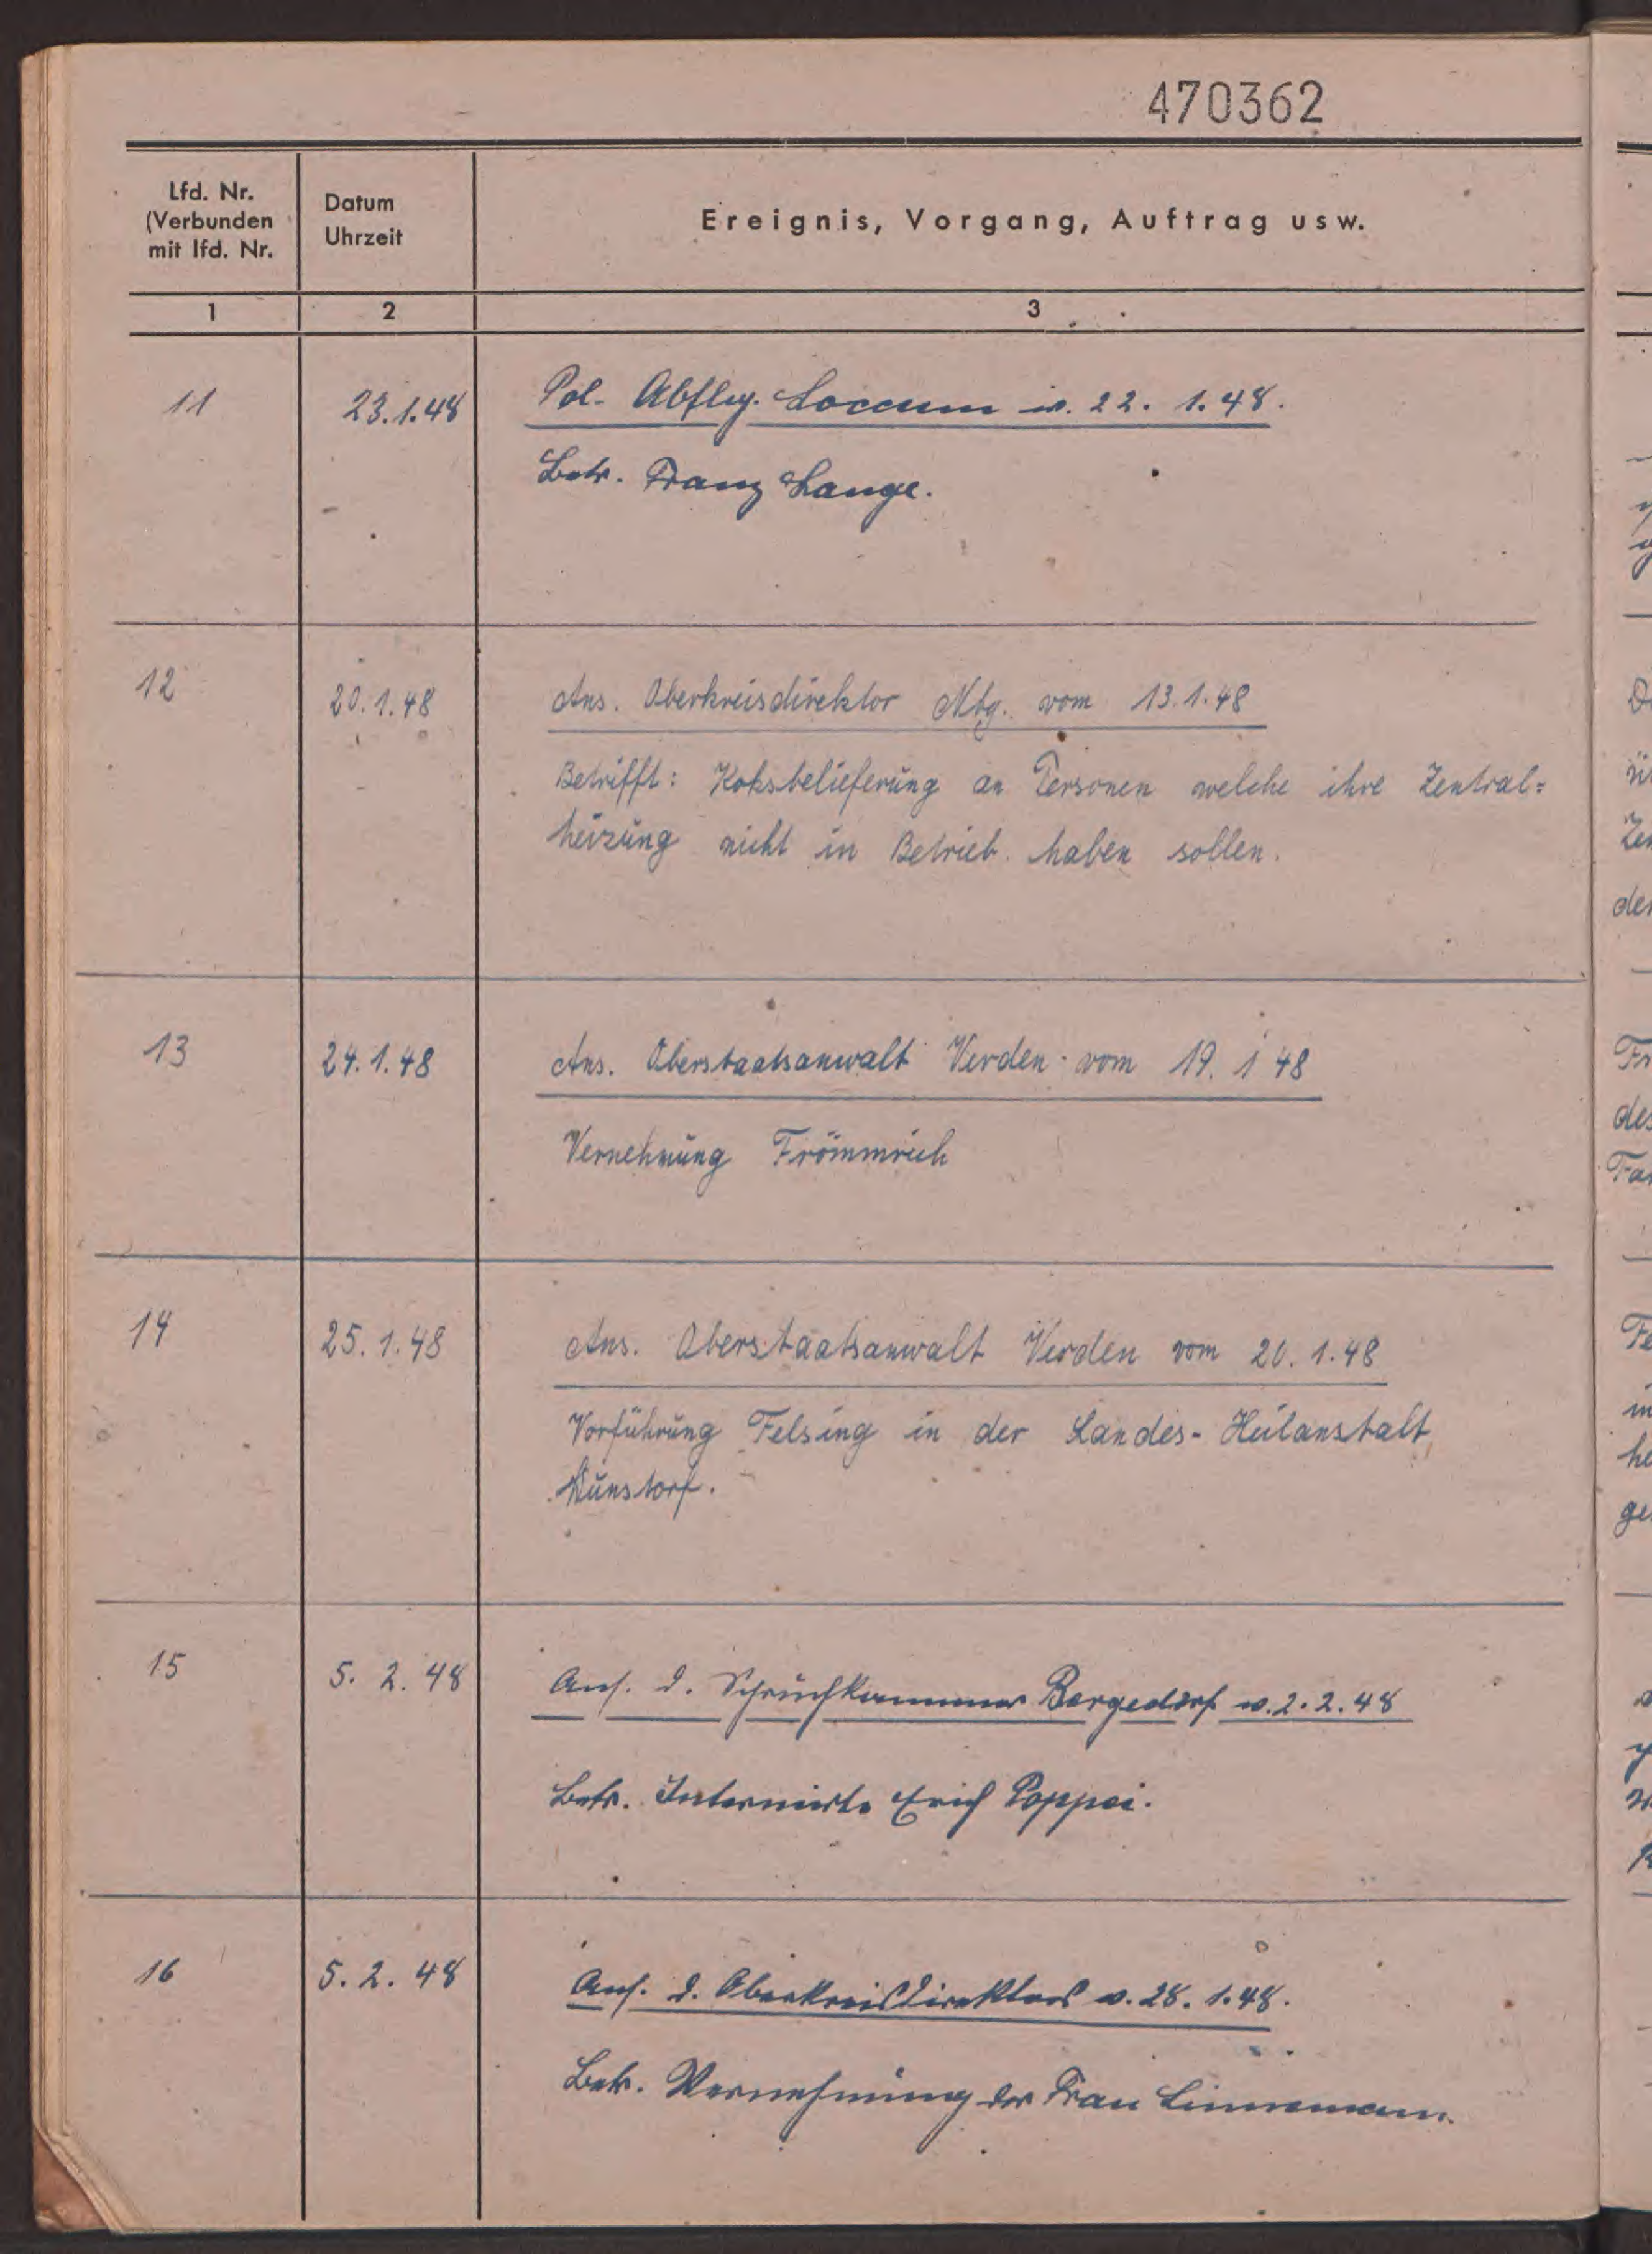 470362
Lfd. Nr.
(Verbunden
mit lfd. Nr.
Datum
Uhrzeit
Ereignis, Vorgang, Auftrag usw.
1 2 3
11 23.1.48 Pol. Abtlg. Loccum v. 22. 1. 48.
Betr. Franz Lange.
12 20.1.48 Ans. Oberkreisdirektor Nbg. vom 13.1.48
Betrifft: Koksbelieferung an Personen welche ihre Zentral=
heizung nicht in Betrieb haben sollen.
13 24.1.48 Ans. Oberstaatsanwalt Verden vom 19. 1 48
Vernehmung Frömmrich
14 25.1.48 Ans. Oberstaatsanwalt Verden vom 20. 1. 48
Vorführung Felsing in der Landes-Heilanstalt
Wunstorf.
15 5. 2. 48 Ans. d. Spruchkammer Bergedorf v. 2. 2. 48
Betr. Internierte Erich Poppei.
16 5. 2. 48 Ans. d. Oberkreisdirektors v. 28. 1. 48.
Betr. Vernehmung der Frau Linnemann.